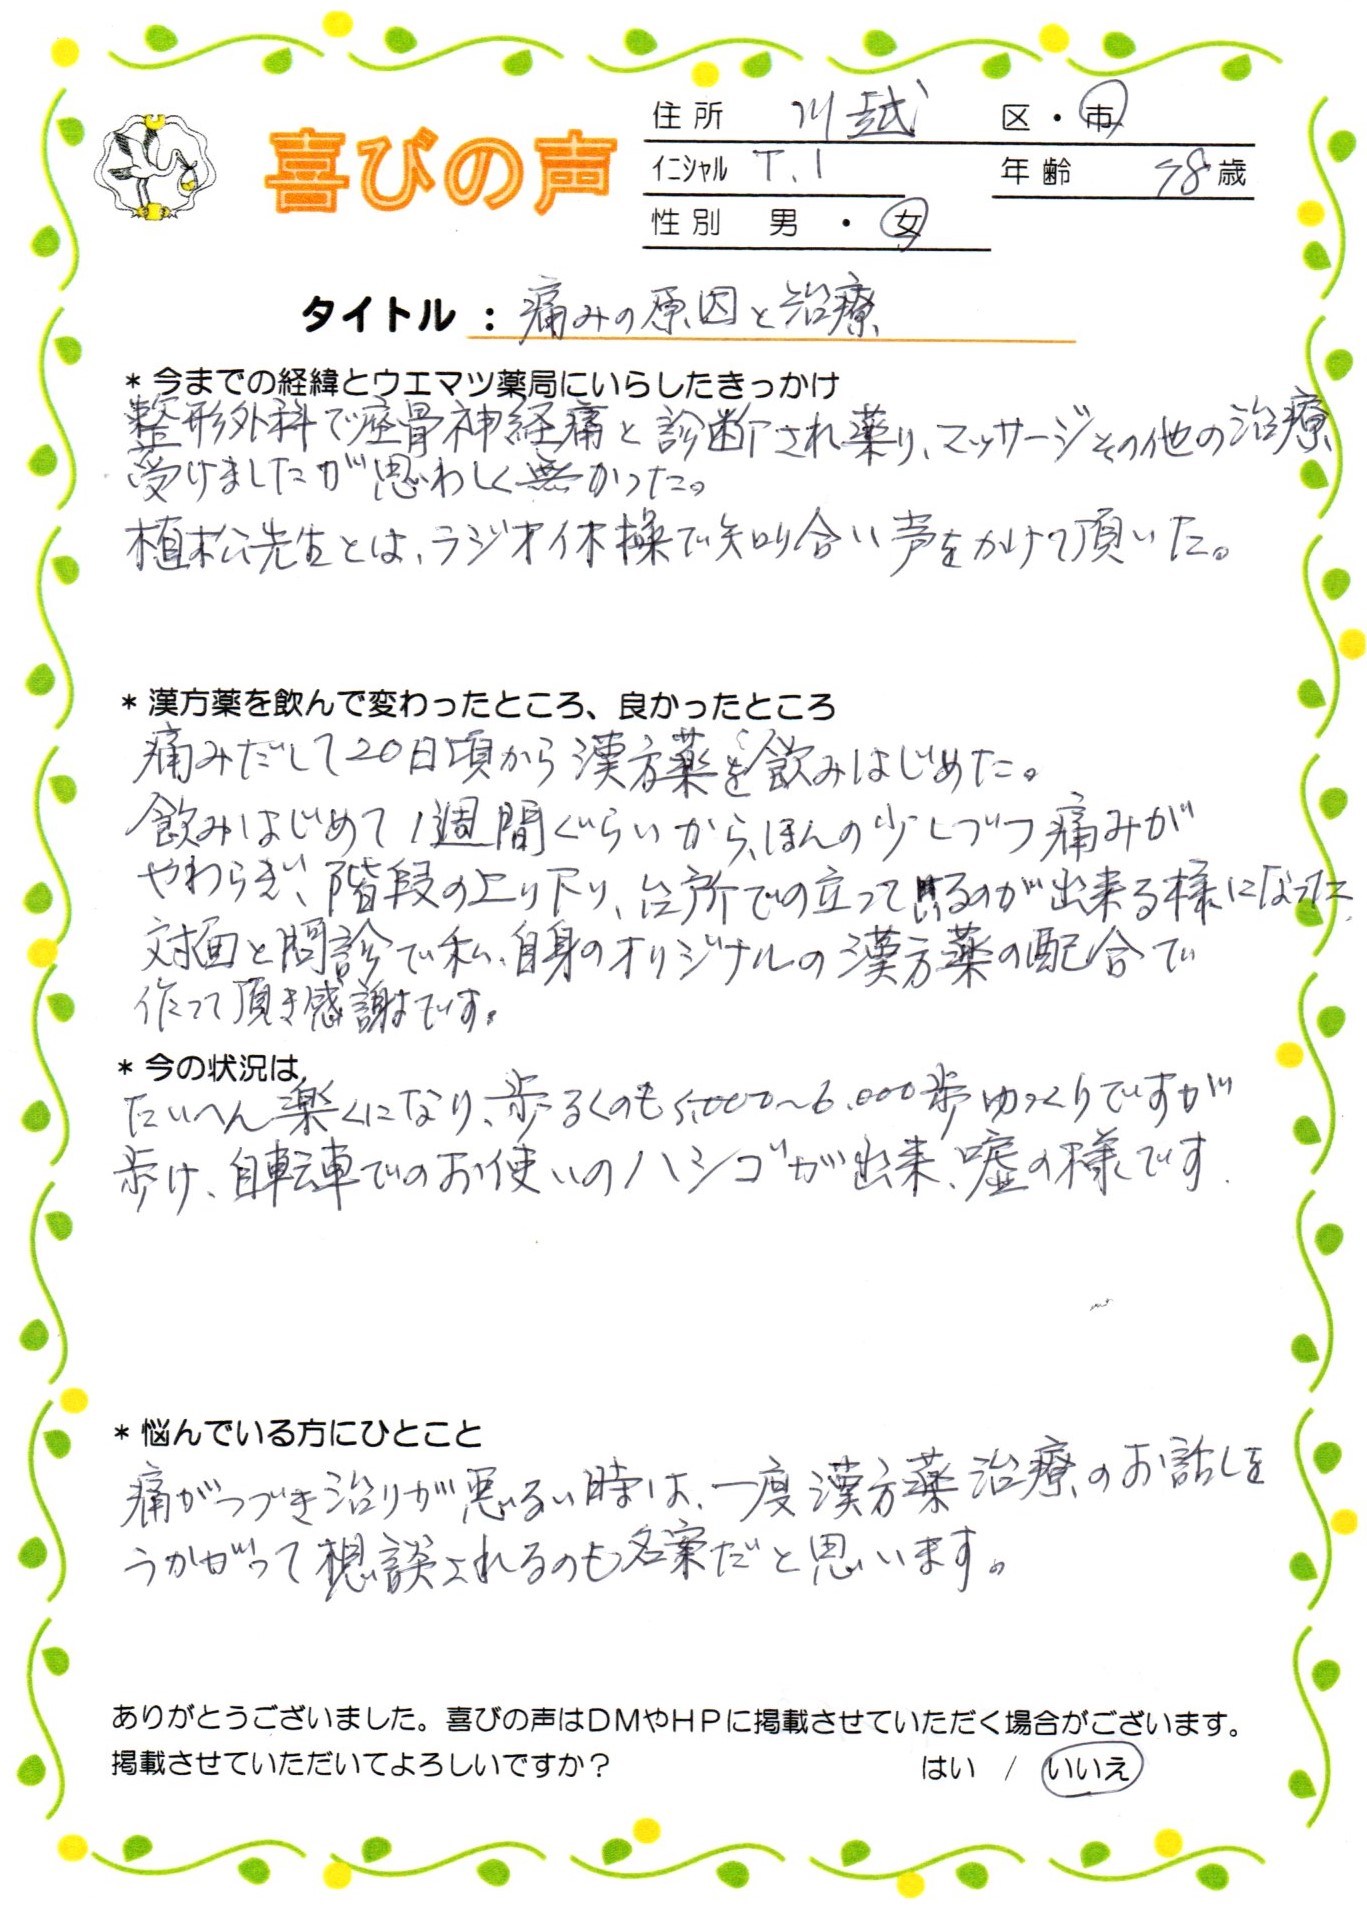 喜びの声
住所 川越 区・市
イニシャル T.I 年齢 78歳
性別 男・女
タイトル：痛みの原因と治療
＊今までの経緯とウエマツ薬局にいらしたきっかけ
整形外科で座骨神経痛と診断され薬り、マッサージその他の治療
受けましたが思わしく無かった。
植松先生とは、ラジオ体操で知り合い声をかけて頂いた。
＊漢方薬を飲んで変わったところ、良かったところ
痛みだして20日頃から漢方薬を飲みはじめた。
飲みはじめて1週間ぐらいから、ほんの少しづつ痛みが
やわらぎ、階段の上り下り、台所での立って居るのが出来る様になった
対面と問診で私、自身のオリジナルの漢方薬の配合で
作って頂き感謝です。
＊今の状況は
たいへん楽くになり、歩るくのも5,000〜6,000歩ゆっくりですが
歩け、自転車でのお使いのハシゴが出来、嘘の様です.
＊悩んでいる方にひとこと
痛がつづき治りが悪るい時は、一度漢方薬治療のお話しを
うかがって想談されるのも名案だと思います。
ありがとうございました。喜びの声はDMやHPに掲載させていただく場合がございます。
掲載させていただいてよろしいですか？ はい / いいえ